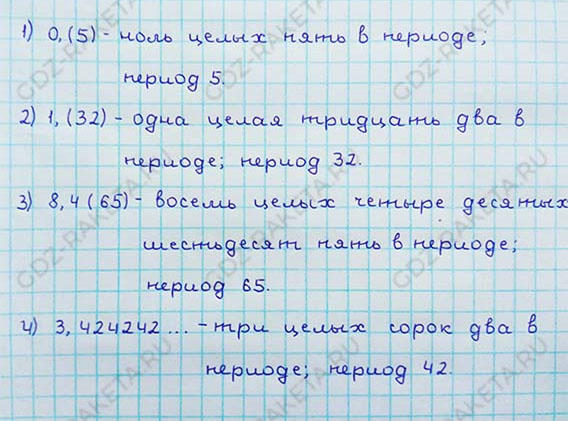 1) 0,(5) - ноль целых пять в периоде;
период 5.
2) 1,(32) - одна целая тридцать два в
периоде; период 32.
3) 8,4(65) - восемь целых четыре десятых
шестьдесят пять в периоде;
период 65.
4) 3,424242... - три целых сорок два в
периоде; период 42.
GDZ-RAKETA.RU